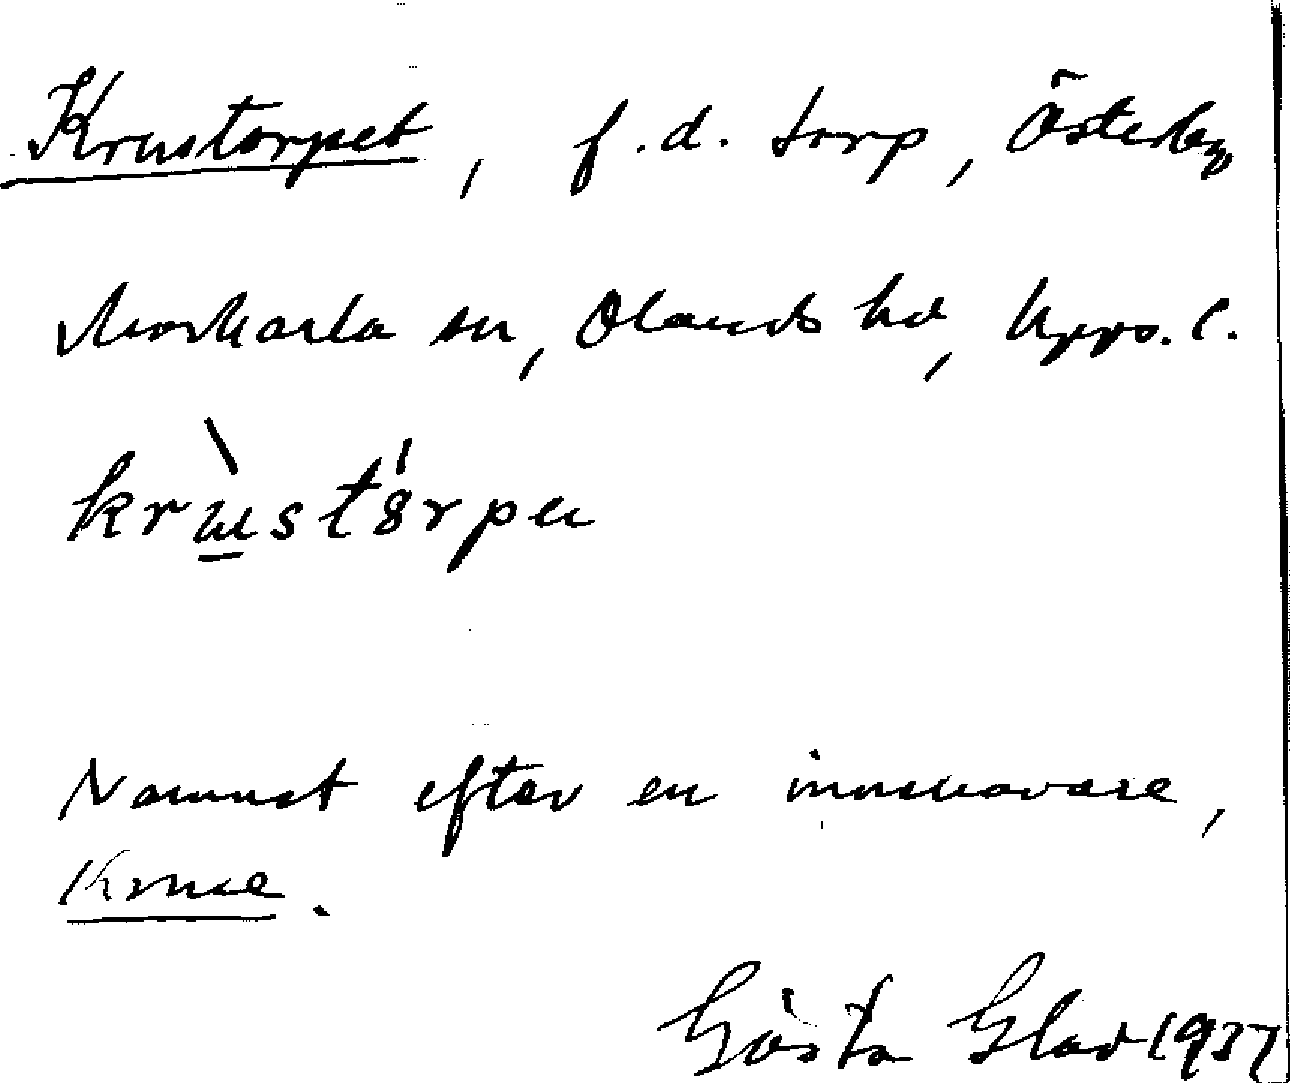 Krustorpet, f.d. torp, Österby
Morkarla sn, Olands hd, Upps. l.
krùstórpeɩ
Namnet efter en innehavare,
Kruse.
Gösta Glad 1937